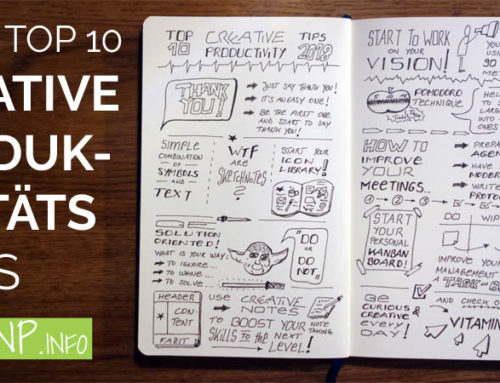 TOP 10
ATIVE
DUK-
TÄTS
S
NP.INFO
TOP 10 CREATIVE PRODUCTIVITY TIPS 2018
THANK YOU!
→ JUST SAY THANK YOU!
→ IT'S AN EASY ONE!
→ BE THE FIRST ONE
AND START TO SAY
THANK YOU!
SIMPLE
COMBINATION
OF
SYMBOLS
AND
TEXT
WTF
ARE
SKETCHNOTES
?
START YOUR
ICON
LIBRARY!
SOLUTION
ORIENTED!
WHAT IS YOUR WAY?
→ TO IGNORE...
→ TO WHINE...
→ TO SOLVE...
"DO
OR
DO
NOT."
HEADER
CON-
TENT
FAZIT
USE CREATIVE
NOTES
TO BOOST YOUR
SKILLS TO THE NEXT
LEVEL!
NOTE
TAKING
START TO WORK
ON YOUR
VISION!
USING
90
POMODORO
TECHNIQUE
HEL
TO
LARG
INTO
ONES
HOW TO
IMPROVE
YOUR
MEETINGS...
→ PREPA
→ HAVE
MODER
→ WRITE
PROTO
1 → 2 → 3 →
START
YOUR
PERSONAL
KANBAN
BOARD!
WIP
IMPROVE YOU
MANAGEMENT
A TASK-B
BE
CURIOUS &
CREATIVE
EVERY
DAY!
AND CHECK O
VITAMIN